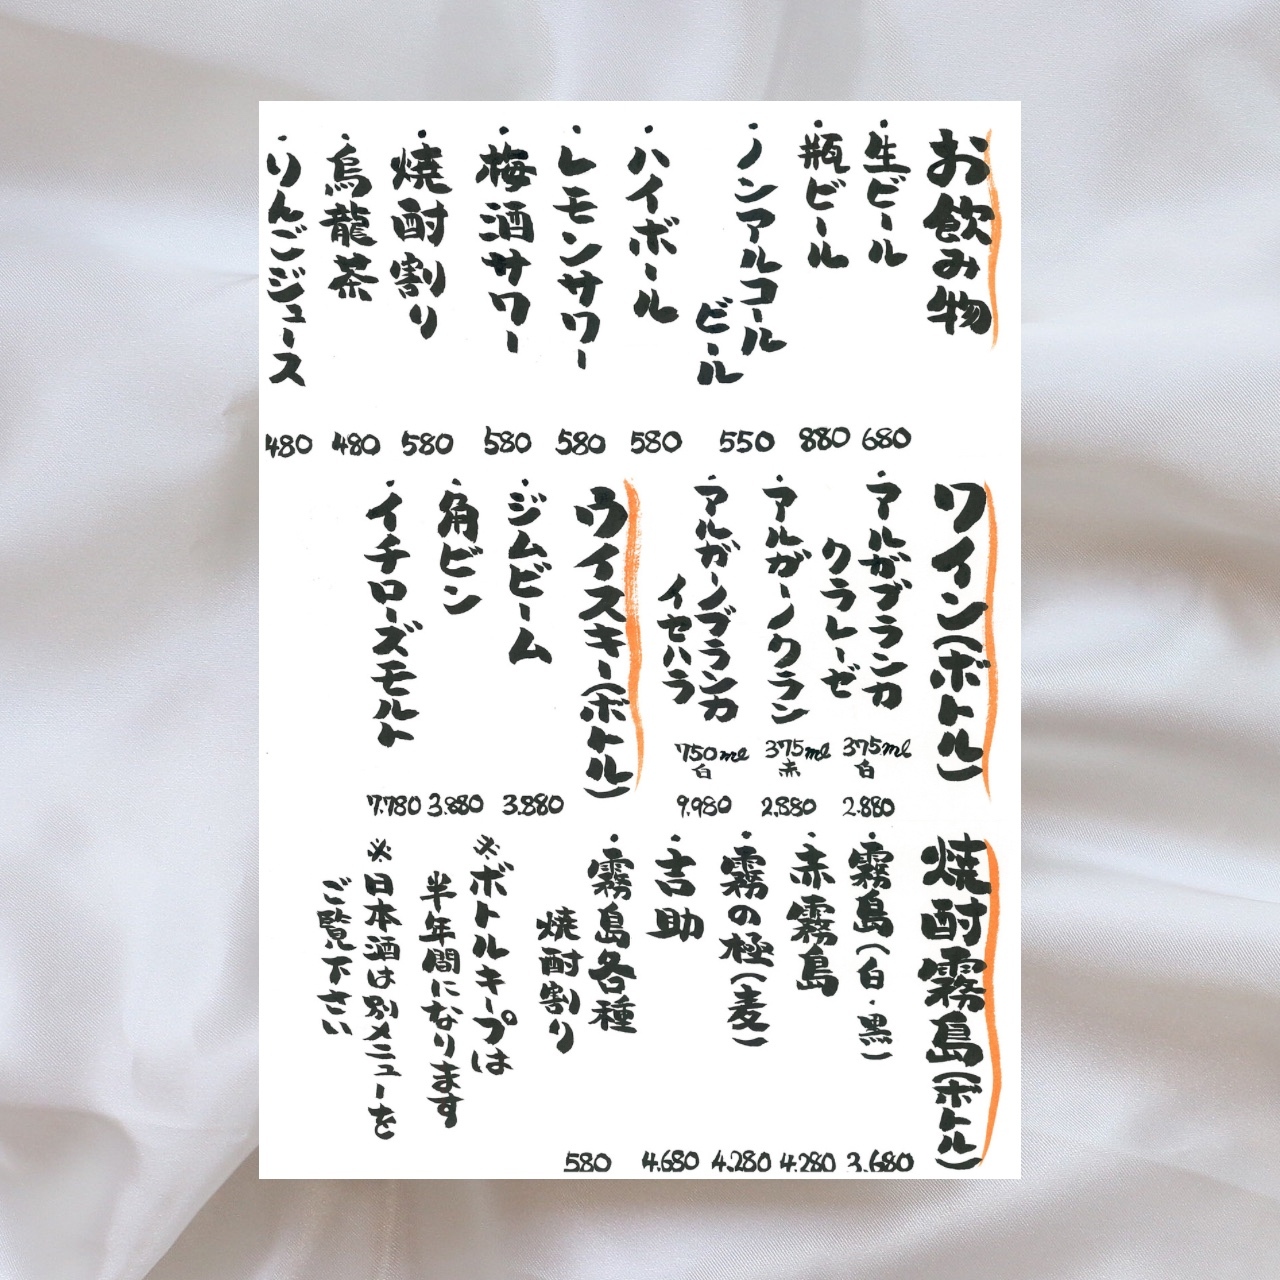 お飲み物
・生ビール 680
・瓶ビール 880
・ノンアルコール
ビール 550
・ハイボール 580
・レモンサワー 580
・梅酒サワー 580
・焼酎割り 580
・烏龍茶 480
・りんごジュース 480
ワイン(ボトル)
・アルガブランカ
クラレーゼ 375ml 白 2.880
・アルガーノクラン 375ml 赤 2,880
・アルガーノブランカ
イセハラ 750ml 白 9.980
ウイスキー(ボトル)
・ジムビーム 3.880
・角ビン 3.880
・イチローズモルト 7.780
焼酎霧島(ボトル)
・霧島(白・黒) 3.680
・赤霧島 4.280
・霧の極(麦) 4.280
・吉助 4.680
・霧島各種
焼酎割り 580
※ボトルキープは
半年間になります
※日本酒は別メニューを
ご覧下さい